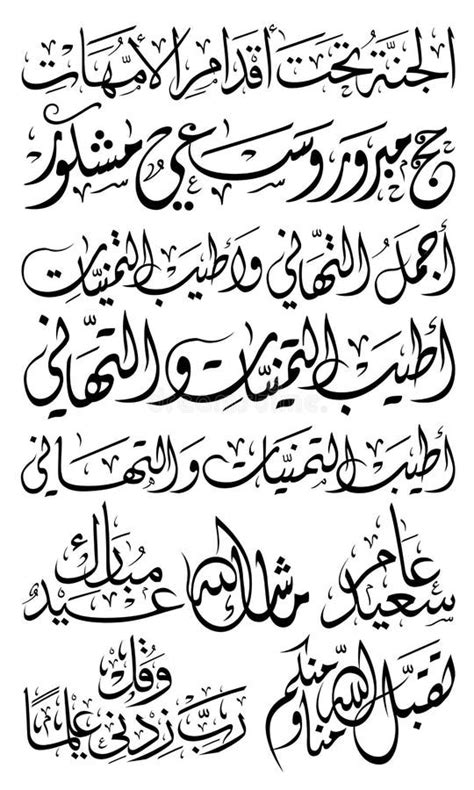 الجنة تحت أقدام الأمهات
حج مبرور وسعي مشكور
أجمل التهاني وأطيب التمنيات
أطيب التمنيات والتهاني
أطيب التمنيات والتهاني
عام سعيد
ما شاء الله
عيد مبارك
تقبل الله منا ومنكم
وقل رب زدني علما